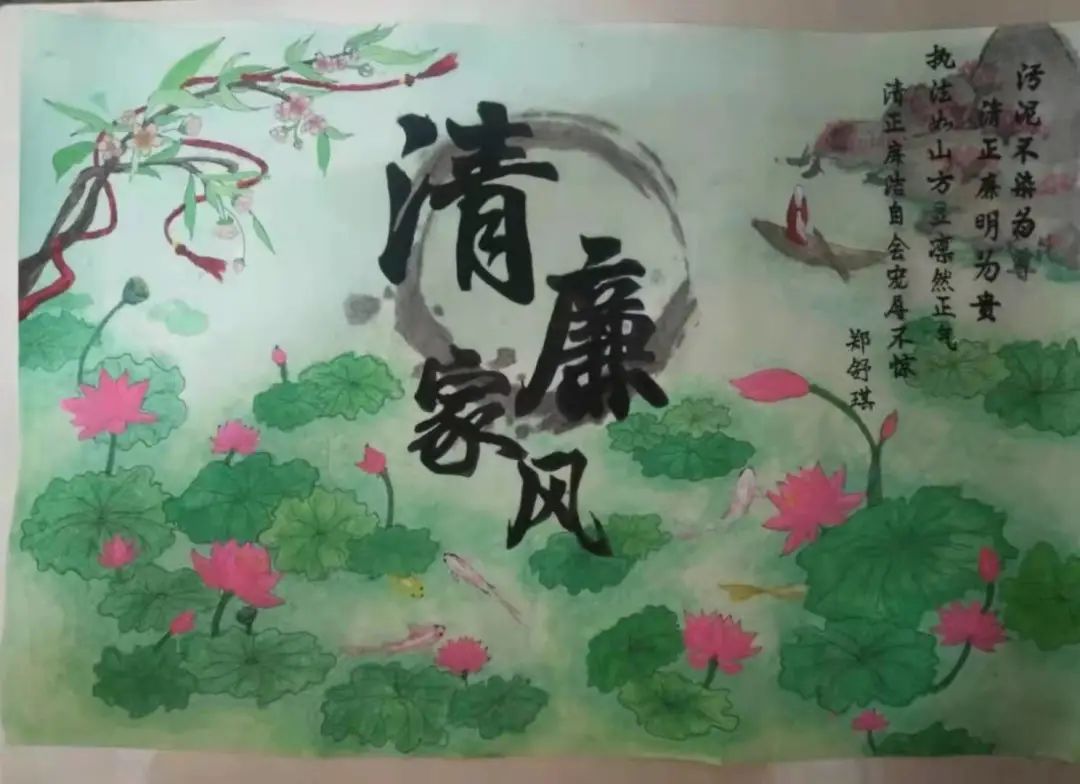 清廉家风
污泥不染为尊
清正廉明为贵
执法如山方显凛然正气
清正廉洁自会宠辱不惊
郑舒琪